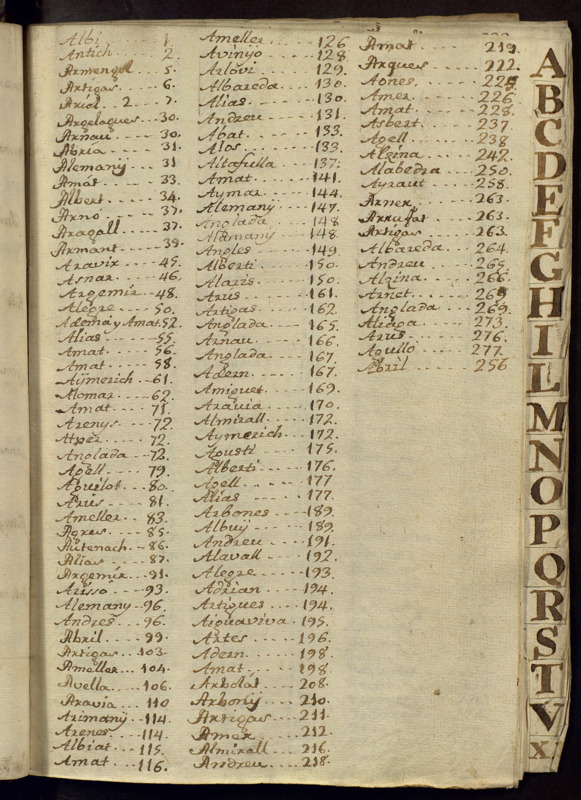 Albi 1.
Antich 2.
Armengol 5.
Artigas 6.
Ariol 2 7.
Argelagues 30.
Arnau 30.
Abria 31.
Alemanÿ 31
Amát 33.
Albert 34.
Arnó 37.
Aragall 37.
Armant 39.
Aravix 45.
Asnar 46.
Argemir 48.
Alegre 50.
Ademá y Amat 52.
Alias 55.
Amat 56.
Amat 58.
Aÿmerich 61.
Alomar 62.
Amat 71.
Arenys 72
Axer 72.
Anglada 72.
Agell 79.
Aguilot 80.
Arus 81.
Ameller 83.
Agrus 85.
Autenach 86.
Alias 87.
Argemir 91.
Arisso 93.
Alemany 96.
Andres 96.
Abril 99.
Artigas 103.
Ameller 104.
Avella 106.
Aravia 110
Arimanÿ 114.
Arenes 114.
Albiat 115.
Amat 116.
Ameller 126
Avinyo 128.
Arlovi 129.
Albareda 130.
Alias 130.
Andreu 131.
Abat 133.
Alos 133.
Altafulla 137.
Amat 141.
Aymar 144.
Alemany 147.
Anglada 148
Alamany 148.
Angles 149.
Alberti 150.
Alaris 150.
Arus 161.
Artigas 162
Anglada 165.
Arnau 166.
Anglada 167.
Adern 167.
Amiguet 169.
Aravia 170.
Almirall 172.
Aymerich 172.
Agusti 175.
Alberti 176.
Agell 177
Alias 177.
Arbones 189.
Albuÿ 189.
Andreu 191.
Alavall 192.
Alegre 193.
Adrian 194.
Artigues 194.
Aiguaviva 195.
Artes 196.
Adern 198.
Amat 198.
Arbolat 208.
Arbonÿ 210.
Artigas 211.
Amer 212.
Almirall 216.
Andreu 218.
Amat 219.
Arques 222.
Aones 225.
Amer 226.
Amat 228.
Asbert 237.
Agell 238
Alzina 242.
Alabedra 250.
Ayraut 258.
Arner 263.
Arrufat 263.
Artigas 263.
Albareda 264.
Andreu 265.
Alzina 266.
Arnet 265
Anglada 269.
Aliaga 273.
Arus 276.
Agullo 277.
Abril 256
A
B
C
D
E
F
G
H
I
L
M
N
O
P
Q
R
S
T
V
X